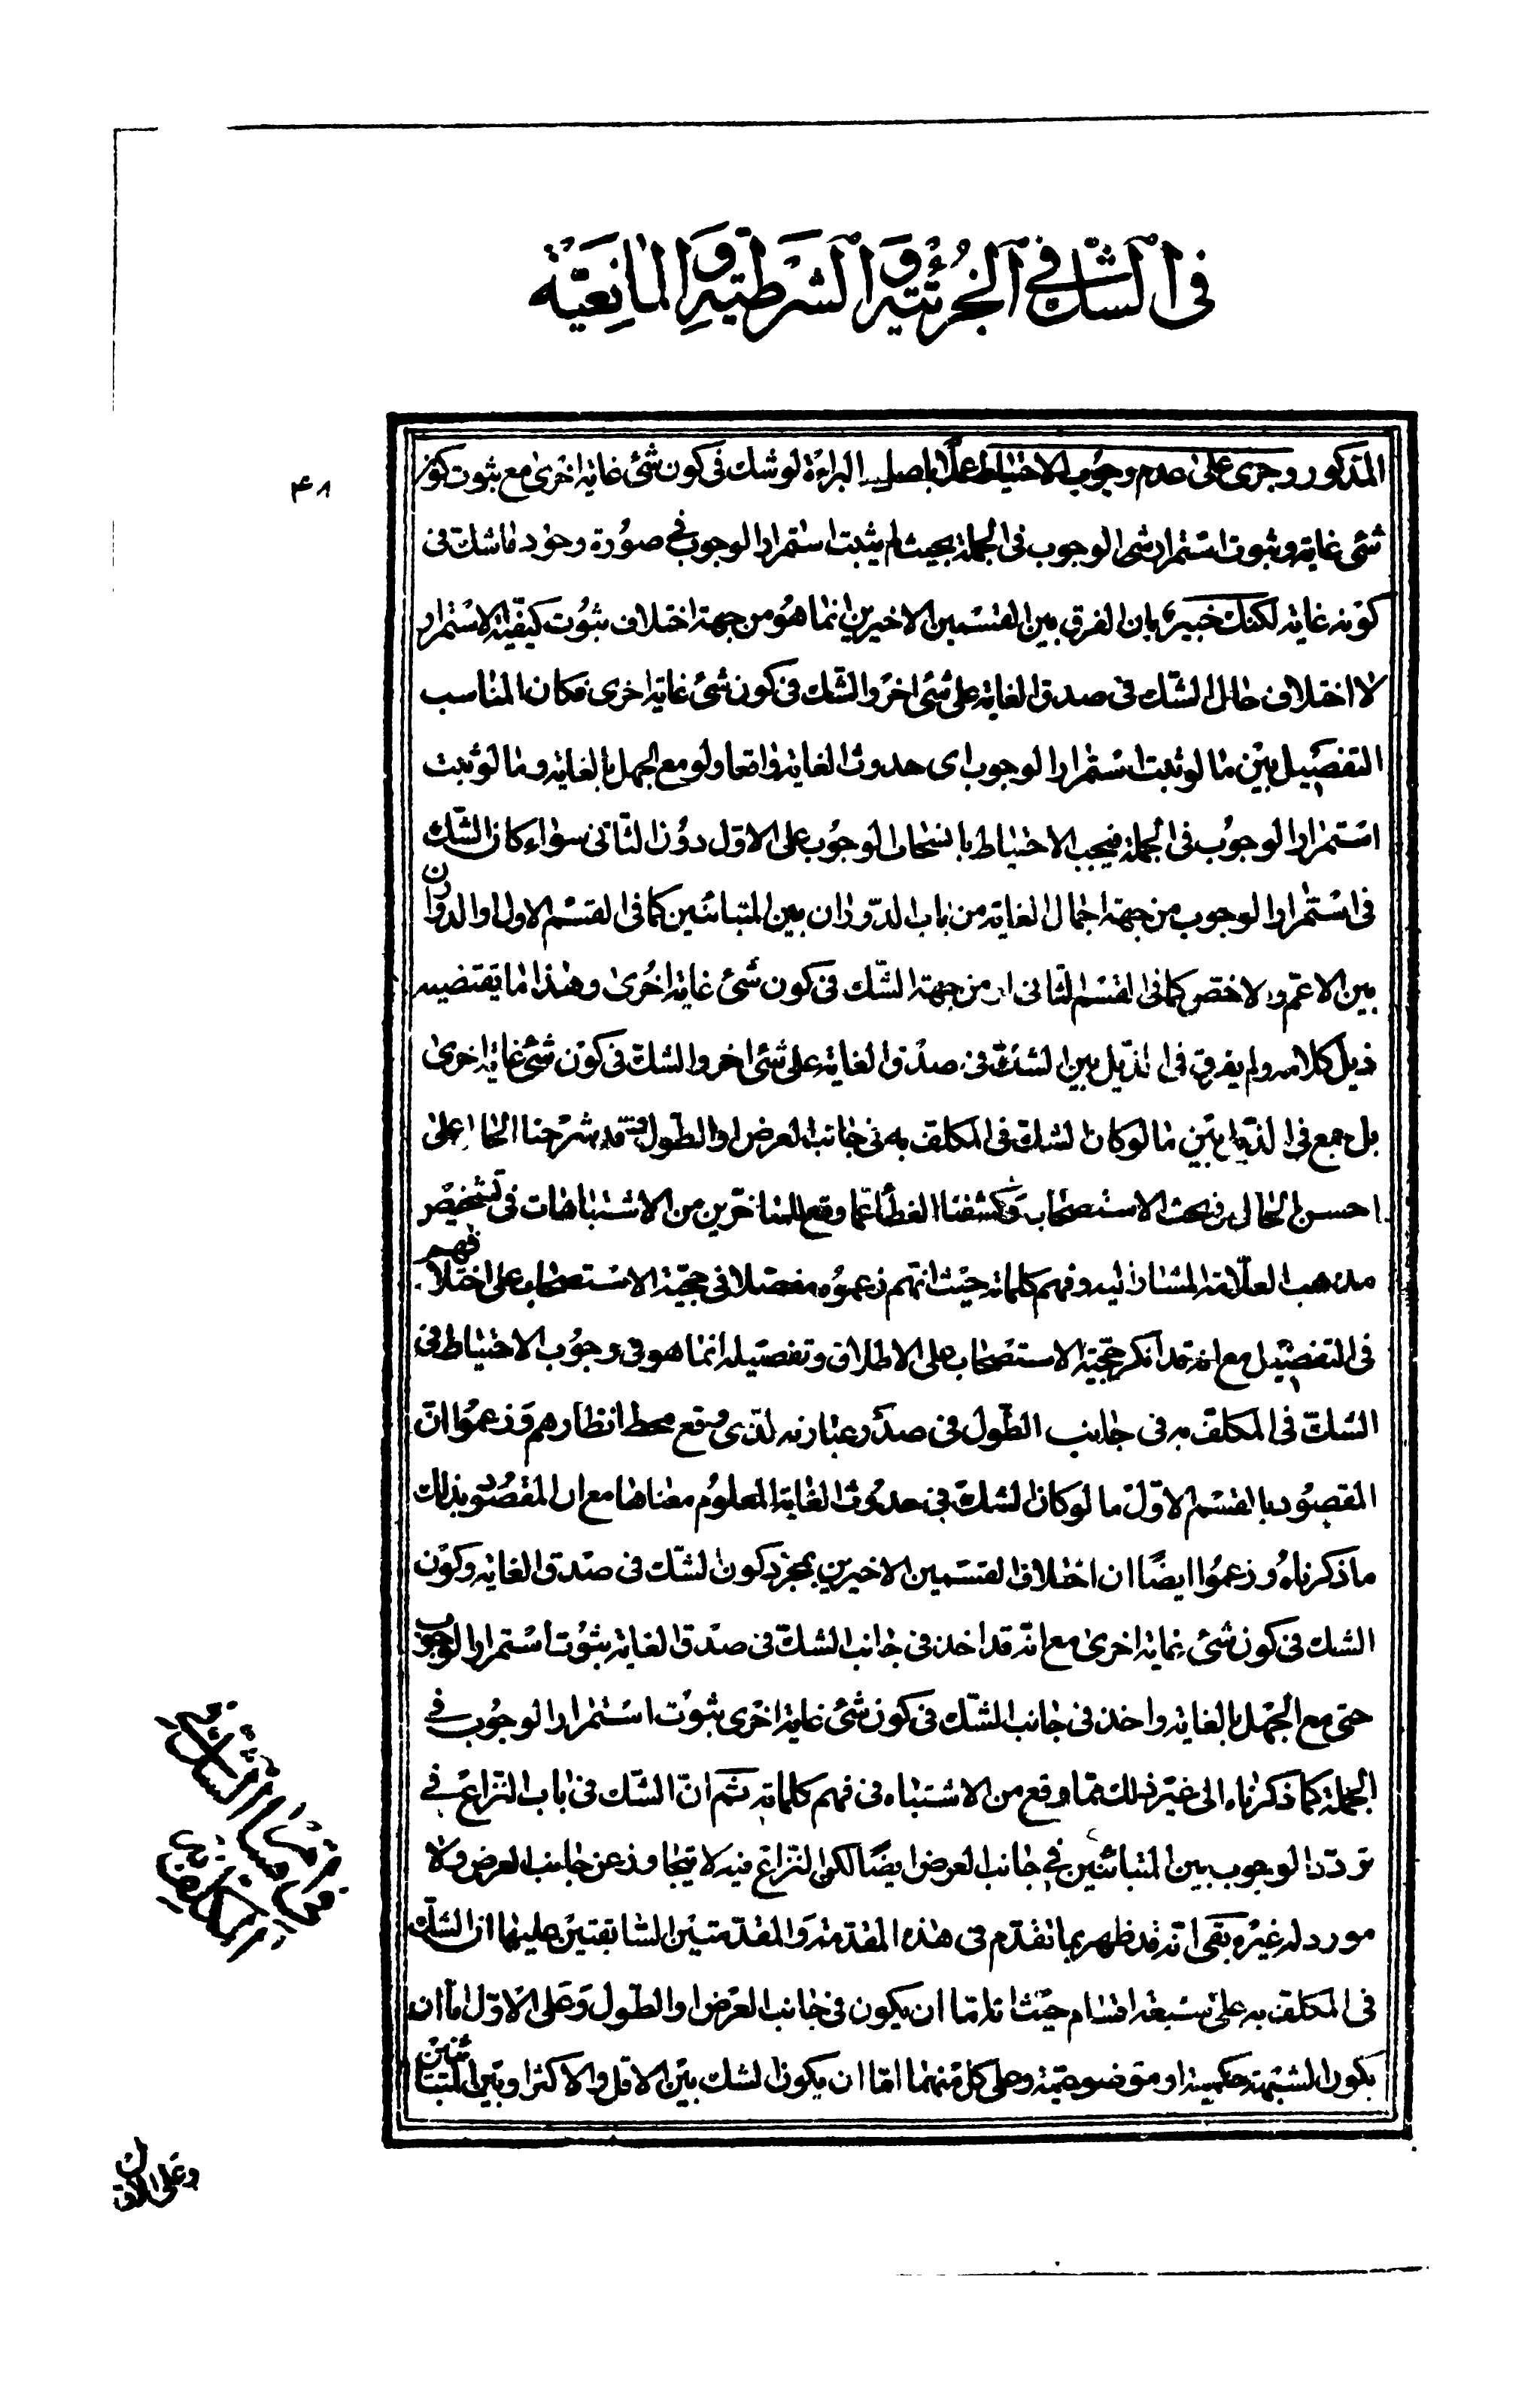 فى الشك في الجزئية و الشرطية و المانعية
۴۸
المذكور وجرى على عدم وجوب الاحتياط عملا باصل البراءة لو شك فى كون شئ غاية اخرى مع ثبوت كون
شئ غاية وثبوت استمرار شى الوجوب فى الجملة بحيث لم يثبت استمرار الوجوب فى صورة وجود ما شك فى
كونه غاية لكنك خبير بان الفرق بين القسمين الاخيرين انما هو من جهة اختلاف ثبوت كيفية الاستمرار
لا اختلاف حال الشك فى صدق الغاية على شئ اخر والشك فى كون شئ غاية اخرى فكان المناسب
التفصيل بين ما لو ثبت استمرار الوجوب اى حدوث الغاية واقعا ولو مع الجهل بالغاية وما لو ثبت
استمرار الوجوب فى الجملة فيجب الاحتياط باستصحاب الوجوب على الاول دون الثانى سواء كان الشك
فى استمرار الوجوب من جهة اجمال الغاية من باب الدوران بين المتبائنين كما فى القسم الاول او الدوران
بين الاعم والاخص كما فى القسم الثانى او من جهة الشك فى كون شئ غاية اخرى وهذا ما يقتضيه
ذيل كلامه ولم يفرق فى الذيل بين الشك فى صدق الغاية على شئ اخر والشك فى كون شئ غاية اخرى
بل جمع فى الذيل بين ما لو كان الشك فى المكلف به فى جانب العرض او الطول وقد شرحنا الحال على
احسن الحال فى بحث الاستصحاب وكشفنا الغطأ عما وقع للمتاخرين من الاشتباهات فى تشخيص
مذهب العلامة المشار اليه وفهم كلماته حيث انهم زعموه مفصلا فى حجية الاستصحاب على اختلافهم
فى التفصيل مع انه قد انكر حجية الاستصحاب على الاطلاق وتفصيله انما هو فى وجوب الاحتياط فى
الشك فى المكلف به فى جانب الطول فى صدر عبارته الذى وقع محط انظارهم وزعموا ان
المقصود بالقسم الاول ما لو كان الشك فى حدوث الغاية المعلوم معناها مع ان المقصود بذلك
ما ذكرناه وزعموا ايضا ان اختلاف القسمين الاخيرين بمجرد كون الشك فى صدق الغاية وكون
الشك فى كون شئ غاية اخرى مع انه قد اخذ فى جانب الشك فى صدق الغاية ثبوت استمرار الوجوب
حتى مع الجهل بالغاية واخذ فى جانب الشك فى كون شئ غاية اخرى ثبوت استمرار الوجوب فى
الجملة كما ذكرناه الى غير ذلك مما وقع من الاشتباه فى فهم كلماته ثم ان الشك فى باب النزاع فى
تردد الوجوب بين المتبائنين فى جانب العرض ايضا لكن النزاع فيه لا يتجاوز عن جانب العرض ولا
مورد له غيره بقى انه قد ظهر بما تقدم فى هذه المقدمة والمقدمتين السابقتين عليها ان الشك
فى المكلف به على سبعة اقسام حيث انه اما ان يكون فى جانب العرض او الطول وعلى الاول اما ان
يكون الشبهة حكمية او موضوعية وعلى كل منهما اما ان يكون الشك بين الاقل والاكثر او بين المتبائنين
وعلى الاول